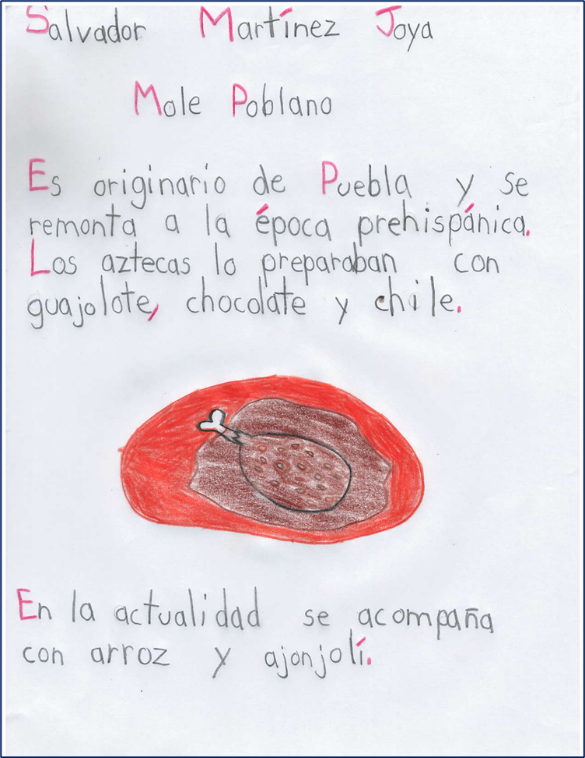 Salvador Martínez Joya
Mole Poblano
Es originario de Puebla y se
remonta a la época prehispánica.
Los aztecas lo preparaban con
guajolote, chocolate y chile.
En la actualidad se acompaña
con arroz y ajonjolí.